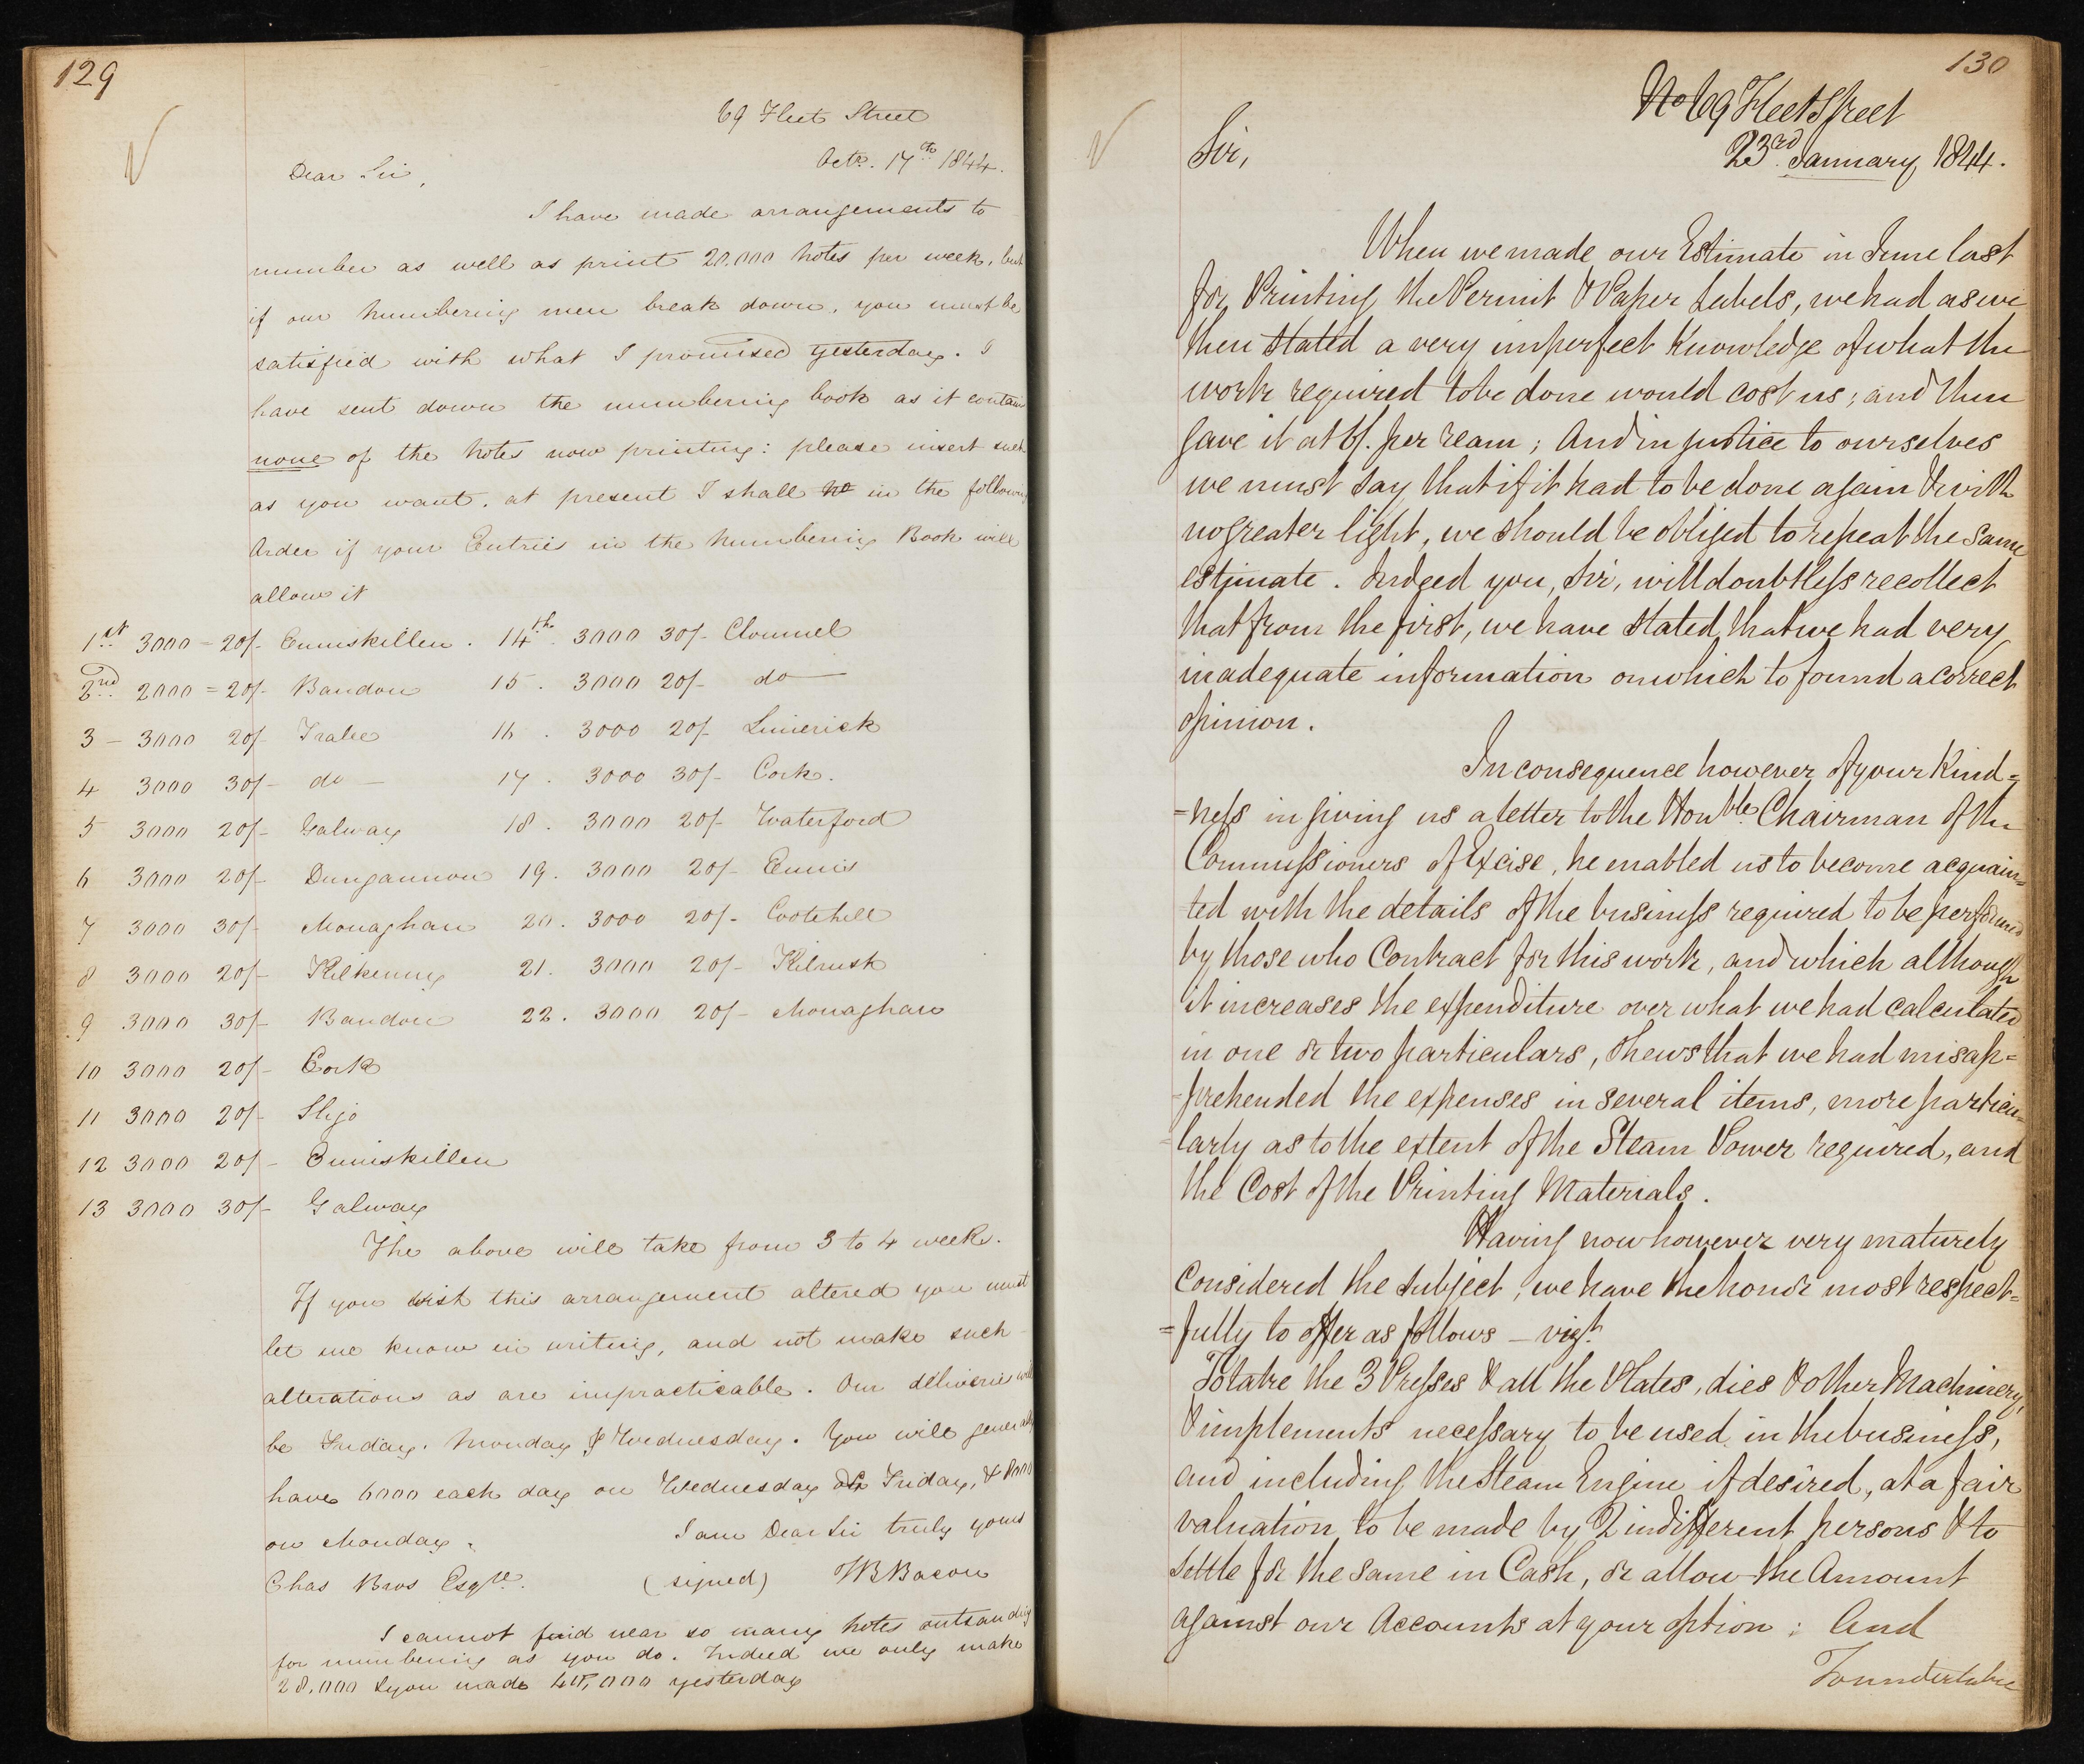 129
69 Fleet Street
Octr. 17th 1844.
Dear Sir,
I have made arrangements to
number as well as print 20.000 notes per week, but
if our numbering men break down, you must be
satisfied with what I promised yesterday. I
have sent down the numbering book as it contains
none of the notes now printing: please insert such
as you want. at present I shall no in the following
Order if your Entries in the Numbering Book will
allow it
1st 3000 = 20/- Enniskillen . 14th. 3000 30/- Clonmel
2nd 2000 = 20/- Bandon 15 . 3000 20/- do —
3 — 3000 20/- Tralee 16 . 3000 20/- Limerick
4 3000 30/- do — 17 . 3000 30/- Cork.
5 3000 20/- Galway 18 . 3000 20/- Waterford
6 3000 20/- Dungannon 19 . 3000 20/- Ennis
7 3000 30/- Monaghan 20 . 3000 20/- Cootehill
8 3000 20/- Kilkenny 21. 3000 20/- Kilrush
9 3000 30/- Bandon 22 . 3000 20/- Monaghan
10 3000 20/- Cork
11 3000 20/- Sligo
12 3000 20/- Enniskillen
13 3000 30/- Galway
The above will take from 3 to 4 weeks.
If you wish this arrangement altered you must
let me know in writing, and not make such
alterations as are impracticable. Our deliveries will
be Friday. Monday & Wednesday. You will generally
have 6000 each day on Wednesday & Friday, & 8000
on Monday.
I am Dear Sir truly yours
Chas Bros Esqre. (signed) JBBacon
I cannot find near so many notes outsanding
for numbering as you do. Indeed we only make
28.000 & you made ,000 yesterday
130
No 69 Fleet Street
23rd January 1844.
Sir,
When we made our Estimate in June last
for Printing the Permit & Paper Labels, we had as we
then stated a very imperfect Knowledge of what the
work required to be done would cost us; and then
gave it at 6/. per ream; And in justice to ourselves
we must say that if it had to be done again & with
no greater light, we should be obliged to repeat the same
estimate. Indeed you, Sir, will doubtless recollect
that from the first, we have stated that we had very
inadequate information on which to found a correct
opinion.
In consequence however of your Kind=
=ness in giving us a letter to the Honble. Chairman of the
Commissioners of Excise, he enabled us to become acquain=
=ted with the details of the business required to be performed
by those who Contract for this work, and which although
it increases the expenditure over what we had calculated
in one or two particulars, shews that we had misap=
=prehended the expenses in several items, more particu=
=larly as to the extent of the Steam Power required, and
the Cost of the Printing Materials.
Having now however very maturely
Considered the subject, we have the honor most respect=
=fully to offer as follows — vizt.
To take the 3 Presses & all the Plates, dies & other Machinery,
& implements necessary to be used in the business,
and including the Steam Engine if desired, at a fair
valuation to be made by 2 indifferent persons & to
settle for the same in Cash, or allow the Amount
against our Accounts at your option; And
To undertake